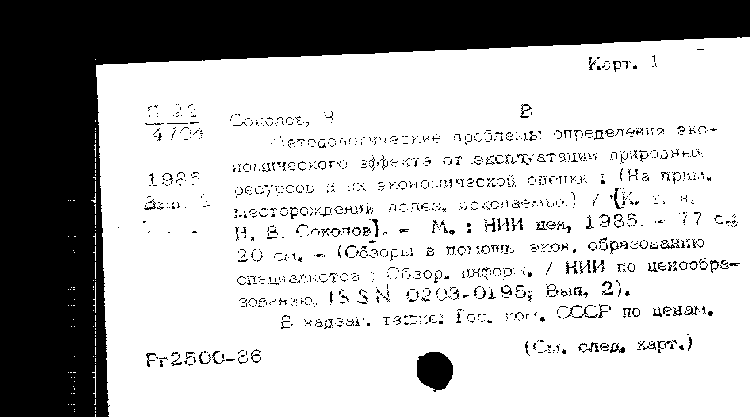 Карт. 1
П 22
4704
Соколов, Н В
Методологические проблемы определения эко-
номического эффекта от эксплуатации природных
1985
ресурсов и их экономической оценки : (На прим.
Вып. 2
месторождений полез. ископаемых) / [К. т. н.
Н. В. Соколов]. - М. : НИИ цен, 1985. - 77 с.;
20 см. - (Обзоры в помощь экон. образованию
специалистов : Обзор. информ. / НИИ по ценообра-
зованию, ISSN 0203-0195; Вып. 2).
В надзаг. также: Гос. ком. СССР по ценам.
(См. след. карт.)
Рг2500-86